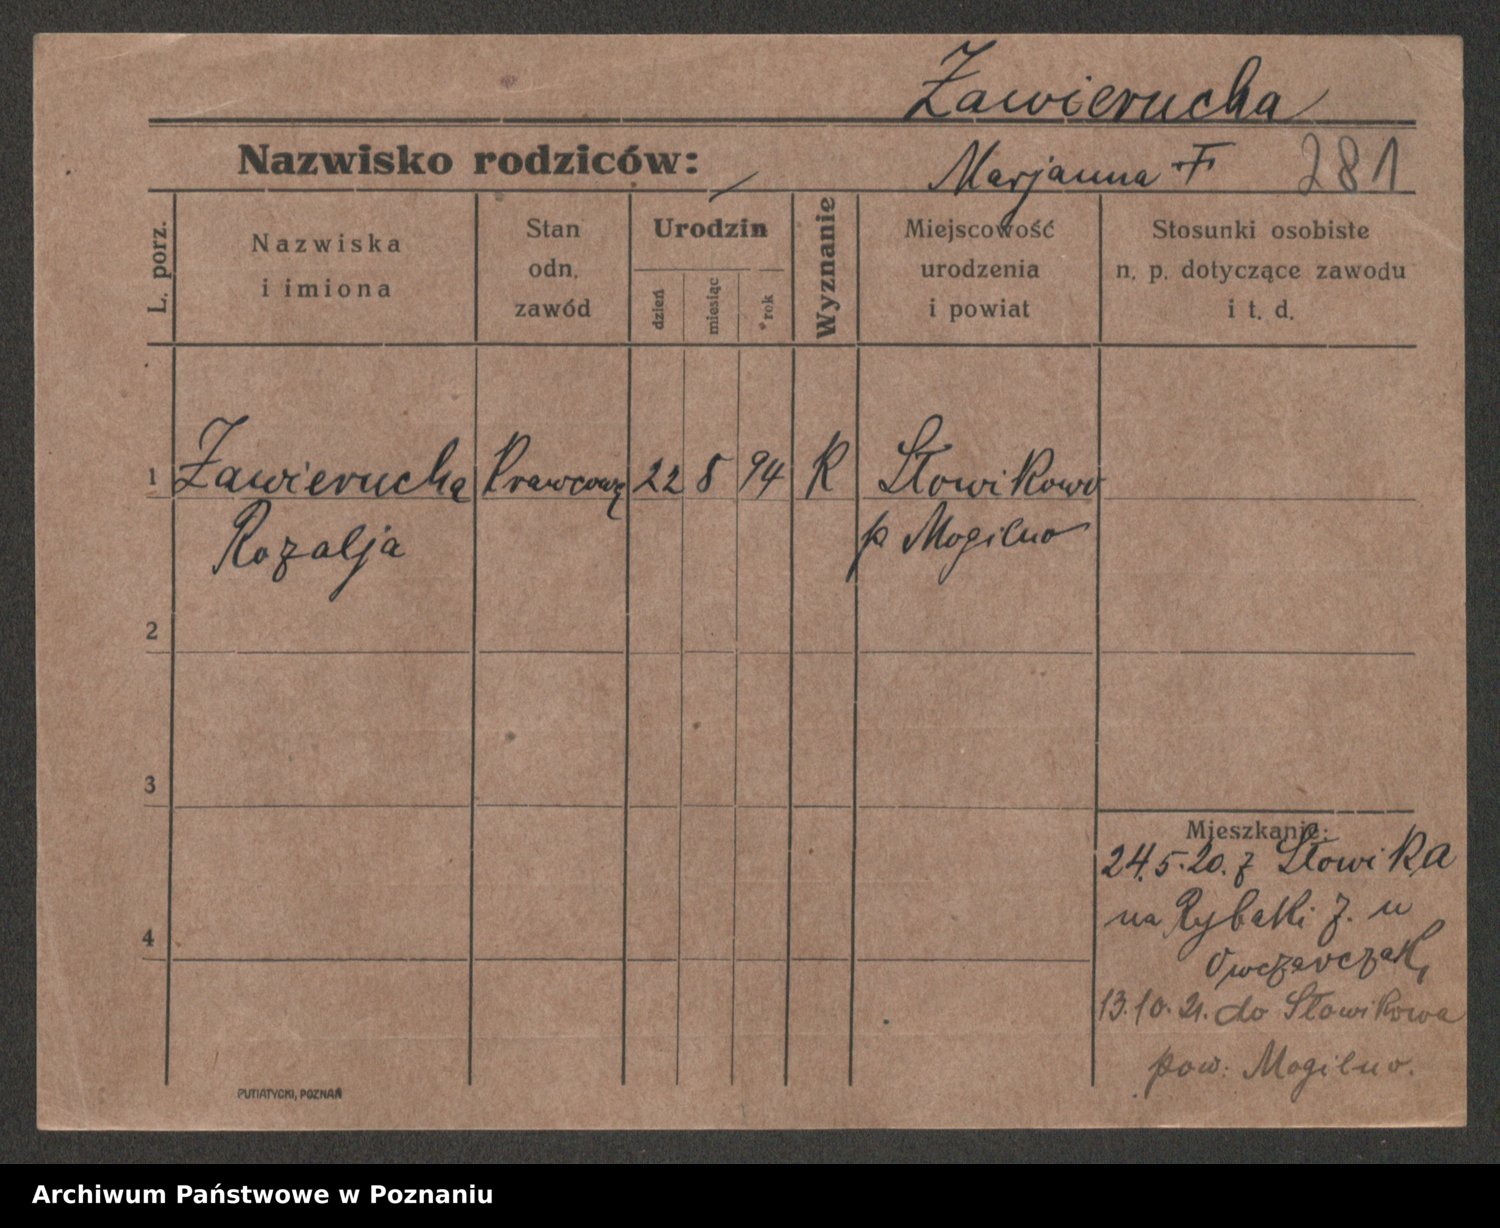 Zawierucha
Nazwisko rodziców:
Marjanna F
281
L. porz.
Nazwiska
i imiona
Stan
odn.
zawód
Urodzin
dzień
miesiąc
rok
Wyznanie
Miejscowość
urodzenia
i powiat
Stosunki osobiste
n. p. dotyczące zawodu
i t. d.
1 Zawierucha Krawcową 22 8 94 K Słowikowo
Rozalja p Mogilno
2
3
4
Mieszkanie:
24.5.20. z Słowika
na Rybaki 7. u
Owczarczak,
13.10.21. do Słowikowa
pow: Mogilno.
PUTIATYCKI, POZNAŃ
Archiwum Państwowe w Poznaniu